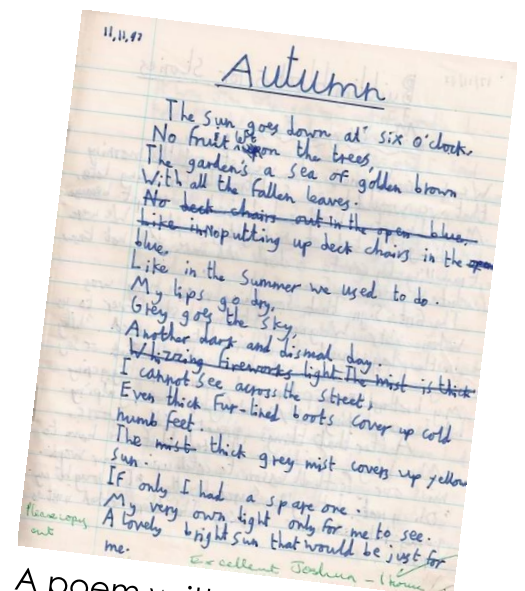 11.11.97
Autumn
The sun goes down at six o'clock.
No fruit on the trees,
The garden's a sea of golden brown
With all the fallen leaves.
No deck chairs out in the open blue,
Like in No putting up deck chairs in the open
blue,
Like in the Summer we used to do.
My lips go dry,
Grey goes the sky,
Another dark and dismal day.
Whizzing fireworks light The mist is thick
I cannot see across the street,
Even thick fur-lined boots cover up cold
numb feet.
The mist thick grey mist covers up yellow
sun.
If only I had a spare one.
My very own light only for me to see.
A lovely bright sun that would be just for
me.
Please copy
out
Excellent Joshua - 1 house
A poem